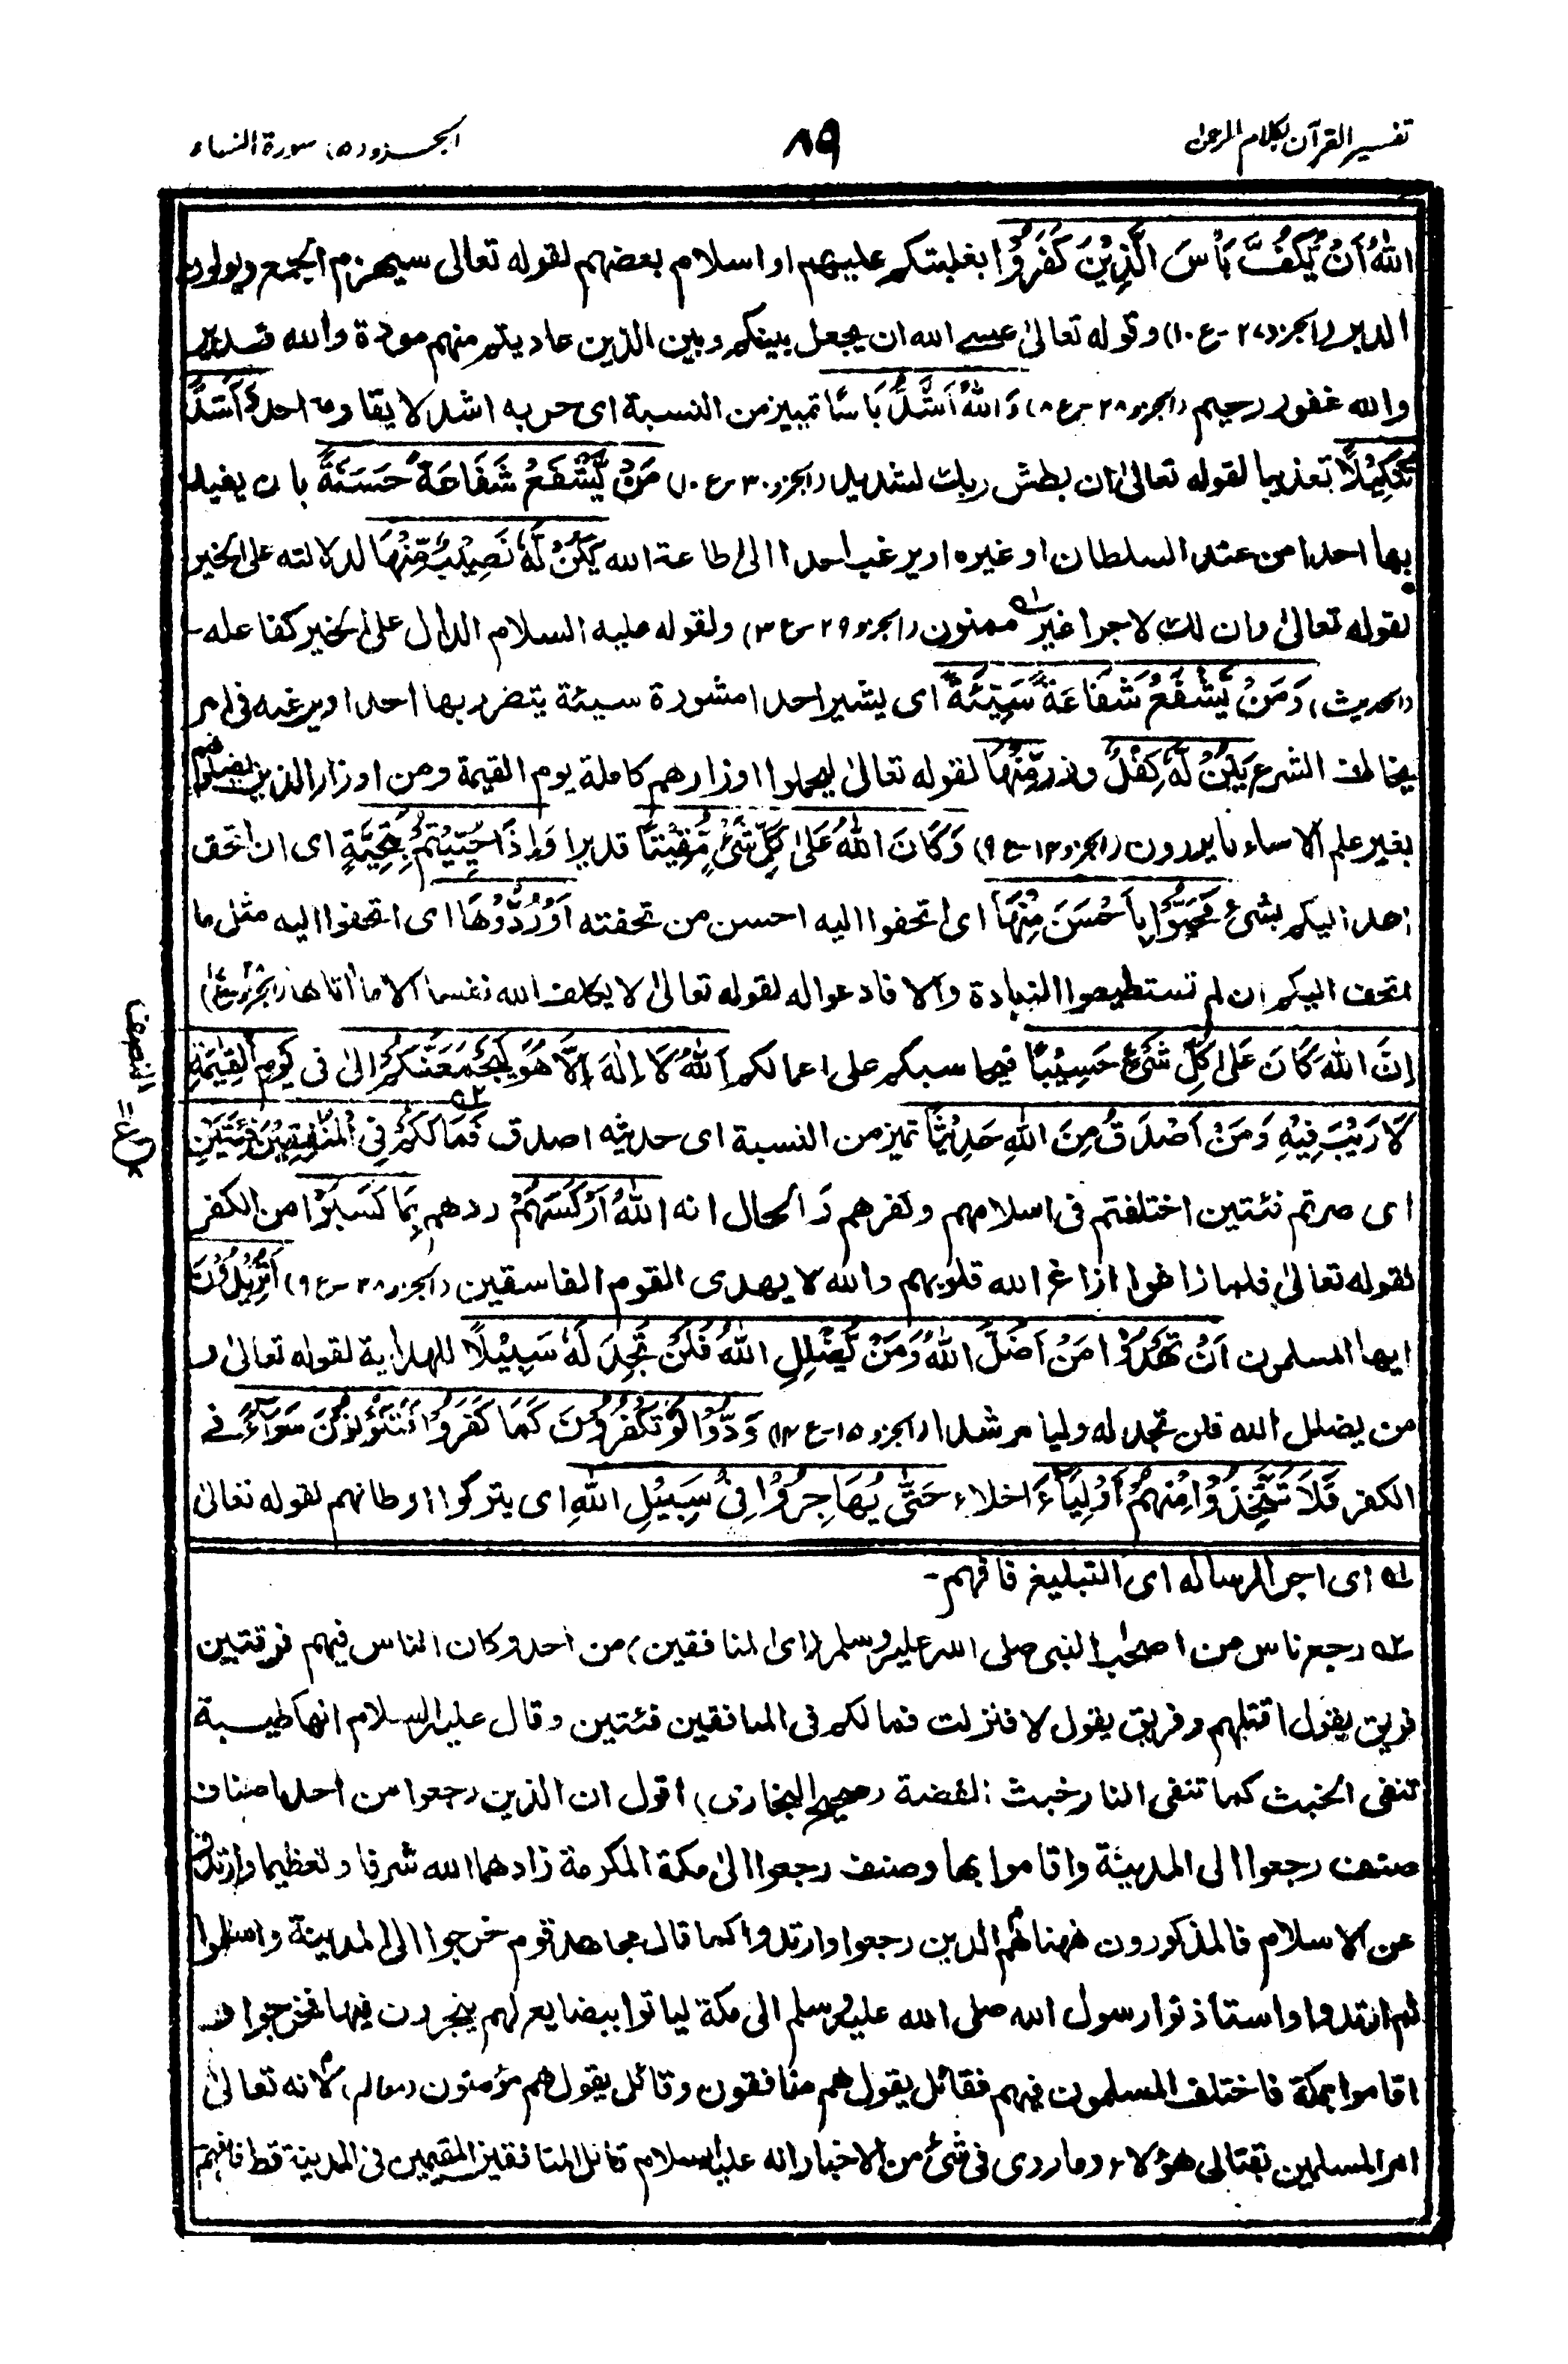 تفسير القرآن بكلام الرحمن
٨٩
الجزو (٥) سورة النساء
اللهُ اَنْ يَّكُفَّ بَاْسَ الَّذِيْنَ كَفَرُوْا بغلبتكم عليهم او اسلام بعضهم لقوله تعالى سيهزم الجمع ويولون
الدبر (الجزو ٢٧ - ع ١٠) وقوله تعالىٰ عسے الله ان يجعل بينكم وبين الذين عاديتم منهم مودة والله قدير
والله غفور رحيم (الجزو ٢٨ - ع ٨) وَاللهُ اَشَدُّ بَاْسًا تمييز من النسبة اى حربه اشد لا يقاومه احد وَّاَشَدُّ
تَنْكِيْلًا تعذيبا لقوله تعالىٰ ان بطش ربك لشديد (الجزو ٣٠ - ع ١٠) مَنْ يَّشْفَعْ شَفَاعَةً حَسَنَةً بان يفيد
بها احدا من عند السلطان او غيره او يرغب احدا الى طاعة الله يَكُنْ لَّهٗ نَصِيْبٌ مِّنْهَا لدلالته على الخير
لقوله تعالىٰ وان لك لاجرا غير ممنون (الجزو ٢٩ - ع ٣) ولقوله عليه السلام الدال على الخير كفاعله -
(الحديث) وَمَنْ يَّشْفَعْ شَفَاعَةً سَيِّئَةً اى يشير احدا مشورة سيئة يتضرر بها احد او يرغبه فى امر
يخالف الشرع يَكُنْ لَّهٗ كِفْلٌ وزر مِّنْهَا لقوله تعالىٰ ليحملوا اوزارهم كاملة يوم القيمة ومن اوزار الذين يضلونهم
بغير علم الا ساء ما يزرون (الجزو ١٤ - ع ٩) وَكَانَ اللهُ عَلىٰ كُلِّ شَىْءٍ مُّقِيْتًا قديرا وَاِذَا حُيِّيْتُمْ بِتَحِيَّةٍ اى ان اتحف
احد اليكم بشئ فَحَيُّوْا بِاَحْسَنَ مِنْهَا اى اتحفوا اليه احسن من تحفته اَوْ رُدُّوْهَا اى اتحفوا اليه مثل ما
اتحف اليكم ان لم تستطيعوا الزيادة والا فادعوا له لقوله تعالىٰ لا يكلف الله نفسا الا ما اتاها
اِنَّ اللهَ كَانَ عَلىٰ كُلِّ شَىْءٍ حَسِيْبًا فيحاسبكم على اعمالكم اَللهُ لَا اِلٰهَ اِلَّا هُوَ لَيَجْمَعَنَّكُمْ اِلىٰ فى يَوْمِ الْقِيٰمَةِ
لَا رَيْبَ فِيْهِ وَمَنْ اَصْدَقُ مِنَ اللهِ حَدِيْثًا تميز من النسبة اى حديثه اصدق فَمَا لَكُمْ فِى الْمُنٰفِقِيْنَ فِئَتَيْنِ
اى صرتم فئتين اختلفتم فى اسلامهم وكفرهم وَ الحال انه اللهُ اَرْكَسَهُمْ ردهم بِمَا كَسَبُوْا من الكفر
لقوله تعالىٰ فلما زاغوا ازاغ الله قلوبهم والله لا يهدى القوم الفاسقين (الجزو ٢٨ - ع ٩) اَتُرِيْدُوْنَ
ايها المسلمون اَنْ تَهْدُوْا مَنْ اَضَلَّ اللهُ وَمَنْ يُّضْلِلِ اللهُ فَلَنْ تَجِدَ لَهٗ سَبِيْلًا للهداية لقوله تعالىٰ و
من يضلل الله فلن تجد له وليا مرشدا (الجزو ١٥ - ع ١٤) وَدُّوْا لَوْ تَكْفُرُوْنَ كَمَا كَفَرُوْا فَتَكُوْنُوْنَ سَوَآءً فے
الكفر فَلَا تَتَّخِذُوْا مِنْهُمْ اَوْلِيَآءَ اخلاء حَتّٰى يُهَاجِرُوْا فِىْ سَبِيْلِ اللهِ اى يتركوا اوطانهم لقوله تعالىٰ
النصف
ع
له اى اجر الرساله اى التبليغ فافهم -
٢ه رجع ناس من اصحاب النبى صلى الله عليه وسلم (اى المنافقين) من احد وكان الناس فيهم فرقتين
فريق يقول اقتلهم وفريق يقول لا فنزلت فما لكم فى المنافقين فئتين وقال عليه السلام انها طيبة
تنفى الخبث كما تنفى النار خبث الفضة (صحيح البخارى) اقول ان الذين رجعوا من احد اصناف
صنف رجعوا الى المدينة واقاموا بها وصنف رجعوا الىٰ مكة المكرمة زادهما الله شرفا وتعظيما وارتدوا
عن الاسلام فالمذكورون ههنا هم الذين رجعوا وارتدوا كما قال مجاهد قوم خرجوا الى المدينة واسلموا
ثم ارتدوا واستأذنوا رسول الله صلى الله عليه وسلم الى مكة لياتوا ببضايع لهم يتجرون فيها فخرجوا و
اقاموا بمكة فاختلف المسلمون فيهم فقائل يقول هم منافقون وقائل يقول هم مؤمنون (معالم) لانه تعالىٰ
امر المسلمين بقتالى هؤلاء وما روى فى شئ من الاخبار انه عليه السلام قاتل المنافقين المقيمين فى المدينة قط فافهم